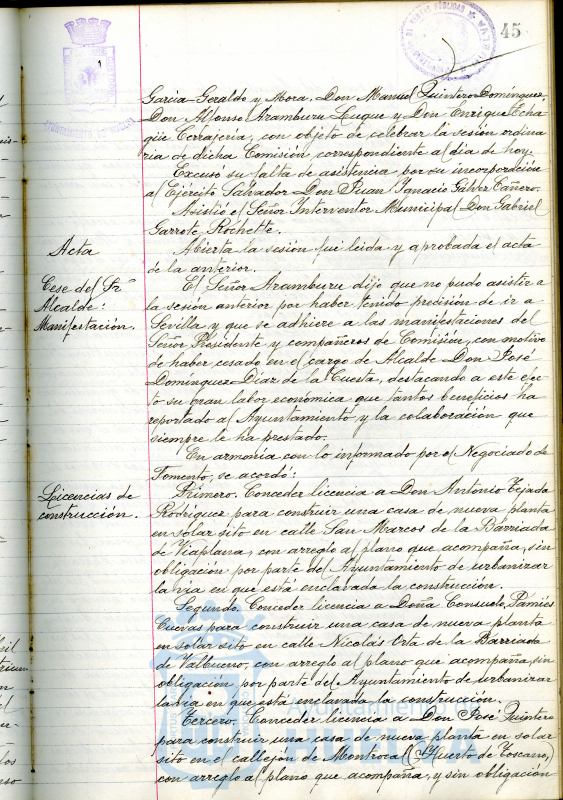 45
García-Geraldo y Mora, Don Manuel Quintero Domínguez
Don Alfonso Aramburu Luque y Don Enrique Echa
güe Cerrajería, con objeto de celebrar la sesión ordina
ria de dicha Comisión, correspondiente al día de hoy.
Excusó su falta de asistencia por su incorporación
al Ejército Salvador Don Juan Ignacio Gálvez Cañero.
Asistió el Señor Interventor Municipal Don Gabriel
Garrote Rochette.
Acta
Abierta la sesión fué leída y aprobada el acta
de la anterior.
Cese del Sr.
Alcalde:
Manifestación.
El Señor Aramburu dijo que no pudo asistir a
la sesión anterior por haber tenido precisión de ir a
Sevilla y que se adhiere a las manifestaciones del
Señor Presidente y compañeros de Comisión, con motivo
de haber cesado en el cargo de Alcalde Don José
Domínguez Díaz de la Cuesta, destacando a este efec
to su gran labor económica que tantos beneficios ha
reportado al Ayuntamiento y la colaboración que
siempre le ha prestado.
En armonía con lo informado por el Negociado de
Fomento, se acordó:
Licencias de
construcción.
Primero. Conceder licencia a Don Antonio Tejada
Rodríguez para construir una casa de nueva planta
en solar sito en calle San Marcos de la Barriada
de Viaplana, con arreglo al plano que acompaña, sin
obligación por parte del Ayuntamiento de urbanizar
la vía en que está enclavada la construcción.
Segundo. Conceder licencia a Doña Consuelo Pamiés
Cuevas para construir una casa de nueva planta
en solar sito en calle Nicolás Orta de la Barriada
de Valbueno, con arreglo al plano que acompaña, sin
obligación por parte del Ayuntamiento de urbanizar
la vía en que está enclavada la construcción.
Tercero. Conceder licencia a Don José Quintero
para construir una casa de nueva planta en solar
sito en el callejón de Montrocal (Huerto de Toscano)
con arreglo al plano que acompaña, y sin obligación
Ayuntamiento de
HUELVA